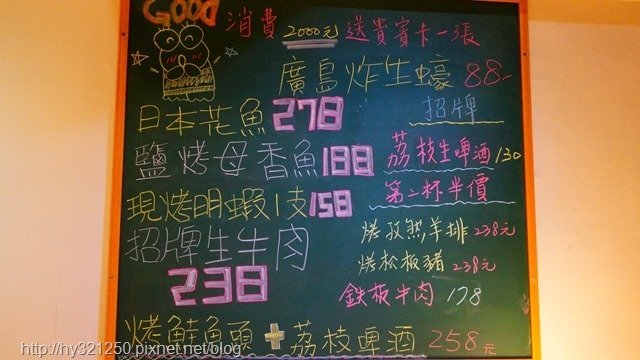 GOOD
消費2000元送貴賓卡一張
廣島炸生蠔 88-
招牌
日本花魚278
鹽烤母香魚188
現烤明蝦1支158
招牌生牛肉
238
荔枝生啤酒130
第二杯半價
烤孜然羊排 238元
烤松板豬 238元
鉄板牛肉 178
烤鮭魚頭+荔枝啤酒 258元
http://hy321250.pixnet.net/blog